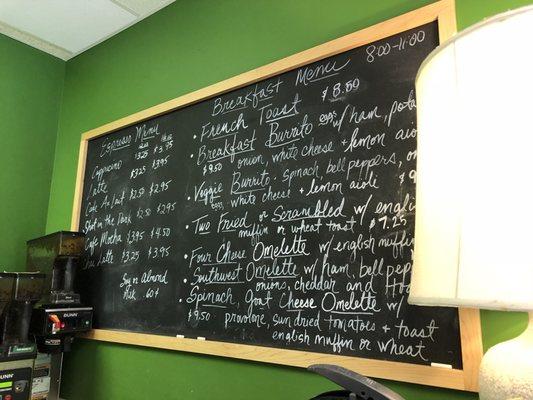 Espresso Menu
Cappucino $3.25 $3.95
Latte $3.25 $3.95
Cafe Au Lait 2.50 $2.95
Shot in the Dark 2.50 $2.95
Cafe Mocha $3.95 $4.50
Chai Latte $3.25 $3.95
Soy or Almond
Milk 60¢
Breakfast Menu 8:00-11:00
• French Toast $8.50
• Breakfast Burrito eggs w/ ham,
$9.50 onion, white cheese + lemon
• Veggie Burrito · spinach, bell peppers,
white cheese + lemon aiole
• Two Fried or Scrambled w/
muffin or wheat toast $7.25
• Four Cheese Omelette w/ english
• Southwest Omelette w/ ham, bell
onions, cheddar and
• Spinach, goat Cheese Omelette w/
$9.50 provolone, sun dried tomatoes + toast
english muffin or wheat
BUNN
BUNN